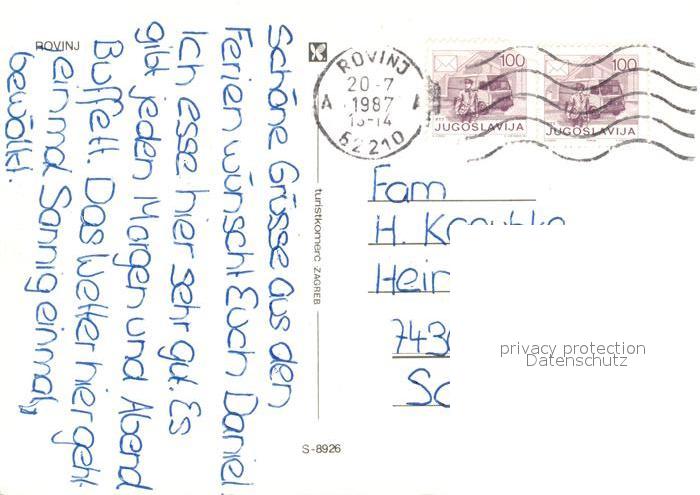 ROVINJ
Schöne Grüsse aus den
Ferien wünscht Euch Daniel
Ich esse hier sehr gut. Es
gibt jeden Morgen und Abend
Buffett. Das Wetter hier geht
einmal Sonnig einmal
bewölkt.
turistkomerc ZAGREB
S-8926
ROVINJ
20-7
1987
13-14
52210
A
100
JUGOSLAVIJA
100
JUGOSLAVIJA
Fam
H.
Heir
743
Sc
privacy protection
Datenschutz